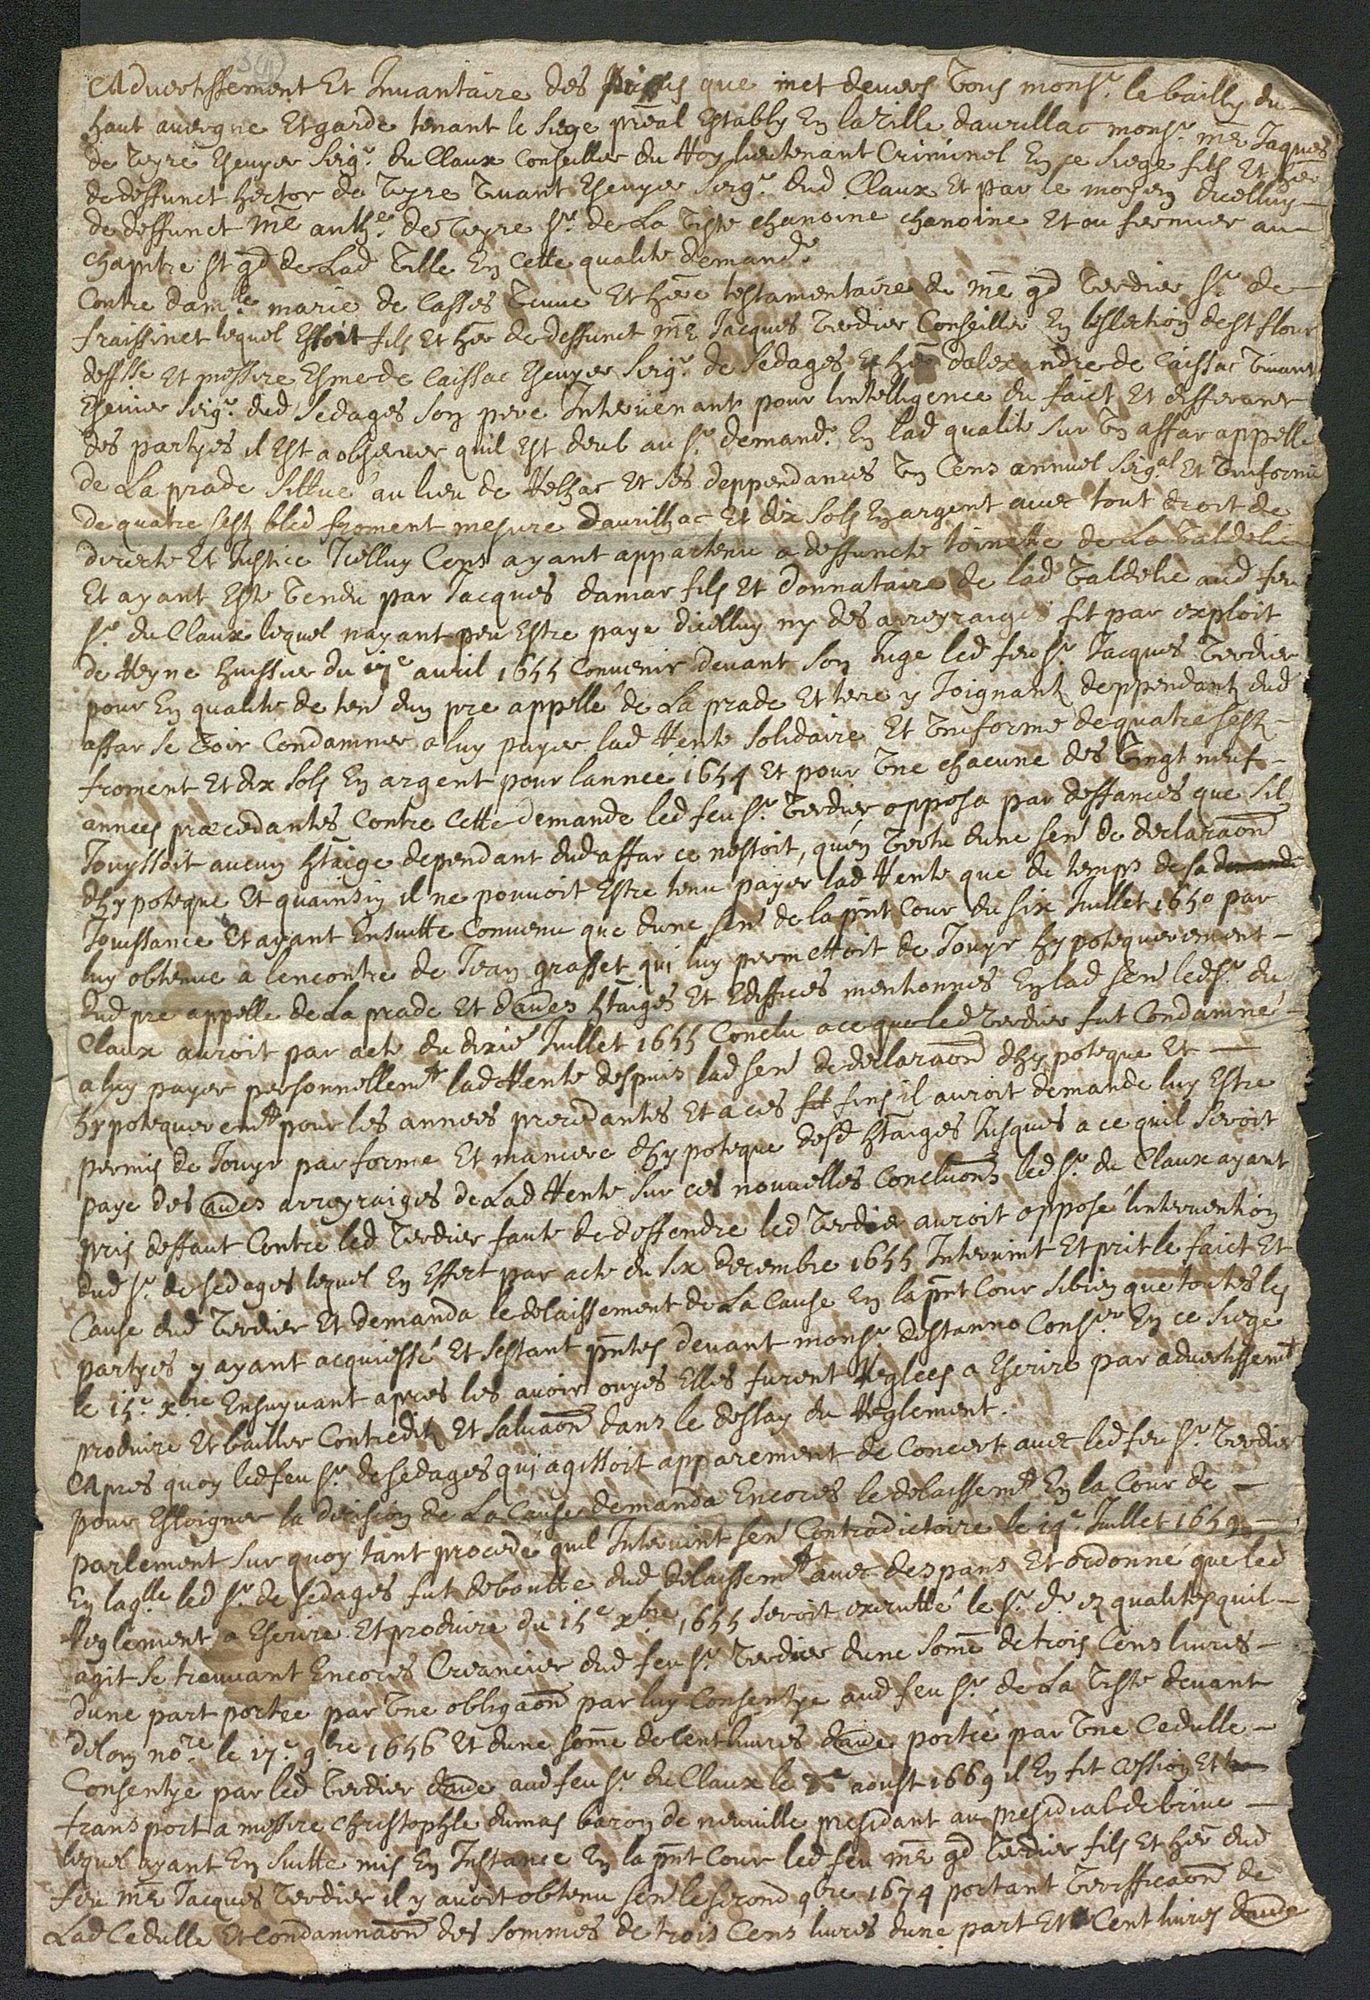 Advertissement Et Invantaire des pieces que met devers Vous monsr. le bailly du
haut auvergne Et garde tenant le siege pñal Estably En la Ville daurillac monsr. me Jaques
de Veyre Escuyer seigr. du Claux Conseiller du Roy lieutenant Criminel En ce siege fils Et hier
de deffunct hector de Veyre Vivant Escuyer seigr. dud Claux Et par le moyen dicelluy
de deffunct me anthe. de Veyre sr. de La Viste chanoine chanoine Et ou fermier au
chapitre st gd de Lad Ville En Cette qualite demandr.
Contre damlle marie de Casses Veuve Et hiere testamentaire de me gd Verdier sr. de
fraissinet lequel Estoit fils Et hier de deffunct me Jacques Verdier Conseiller En leslection de st flour
deffsse Et messire Esme de Caissac Escuyer seigr. de Sedages Et hier dalexandre de Caissac Vivant
Escuier seigr. dud Sedages son pere Intervenant pour lintelligence du faict Et differant
des partyes il Est a observer quil Est deub au sr. demandr. En lad qualite sur Un affar appelle
de La prade sittué au lieu de Relhac Et ses deppendances Un Cens annuel seigal Et Uniforme
de quatre sest bled froment mesure daurilhac Et dix sols En argent avec tout droit de
directe Et Justice Icelluy Cens ayant appartenu a deffuncte toinette de La Valdelie
Et ayant Este Vendu par Jacques damar fils Et donnataire de lad Valdelie aud feu
sr. du Claux lequel nayant peu Estre paye dicelluy ny des arreyraiges fit par exploit
de Reyne huissier du 17e avril 1655 Convenir devant son Juge led feu sr. Jacques Verdier
pour En qualite de ten dun pre appellé de La prade Et tere y Joignant deppendant dud
affar se Voir Condamner a luy payer lad Rente solidaire Et Uniforme de quatre sest
froment Et dix sols En argent pour lannée 1654 Et pour Une chacune des Vingt neuf
annees præcedantes Contre Cette demande led feu sr. Verdier opposa par deffances que sil
Jouyssoit aucun htaige dependant dud affar ce nestoit, quén Vertu dune sen de declaraon
dhypoteque Et quainsin il ne pouvoit Estre tenu payer lad Rente que de temps de sa demande
Jouissance Et ayant Ensuitte Convenu que dune sen de la pnt Cour du six Juillet 1650 par
luy obtenue a lencontre de Jean grasset qui luy permettoit de Jouyr hypotequerement
dud pre appelle de La prade Et daues htaiges Et Ediffices mentionnes En lad sen led sr. du
Claux auroit par acte du dixie Juillet 1655 Conclu a ce que led Verdier fut Condamné
a luy payer personnellemt lad Rente despuis lad sen de declaraon dhypoteque Et
hypotequeremt pour les annees precedantes Et a ces fit fins il auroit demande luy Estre
permis de Jouyr par forme Et maniere dhypoteque desd htaiges Jusques a ce quil seroit
paye des aues arreyraiges de Lad Rente sur ces nouvelles Concluons led sr. du Claux ayant
pris deffaut Contre led Verdier faute de deffendre led Verdier auroit opposé lintervention
dud sr. de sedages lequel En Effect par acte du six decembre 1655 Intervint Et prit le faict Et
Cause dud Verdier Et demanda le delaissement de La Cause En la pnt Cour si bien que toutes les
partyes y ayant acquiessé Et sestant pntes devant monsr. destanno Conser En ce siege
le 15e xbre Ensuyvant apres les avoir ouyes Elles furent Reglees a Escrire par advertissemt
produire Et bailler Contredit Et salvaon dans le deslay du Reglement.
Apres quoy led feu sr. de sedages qui agissoit apparement de Concert avec led feu sr. Verdier
pour Esloigner la decision de La Cause demanda Encores le delaissemt En la Cour de
parlement sur quoy tant procedé quil Intervint sen Contradictoire le 19e Juillet 1659
En laqlle led sr. de sedages fut deboutte dud delaissemt avec despans Et ordonné que led
Reglement a Escrire Et produire du 15e xbre 1655 seroit executté le sr. dr. ez qualites quil
agit se trouvant Encores Creancier dud feu sr. Verdier dune some de trois Cens livres
dune part portee par Une obligaon par luy Consentye aud feu sr. de La Viste devant
delom nore le 17e 9bre 1656 Et dune some de Cent livres daue portée par Une Cedulle
Consentye par led Verdier daue aud feu sr. du Claux le 7e aoust 1669 il En fit cession Et
transport a messire Christophle dumas baron de neuville presidant au presidial de brive
lequel ayant En suitte mis En Instance En la pnt Cour led feu me gd Verdier fils Et hier dud
feu me Jacques Verdier il y auroit obtenu sen le second 9bre 1674 portant Veriffiaon de
Lad Cedulle Et Condamnaon des sommes de trois Cens livres dune part Et Cent livres daue